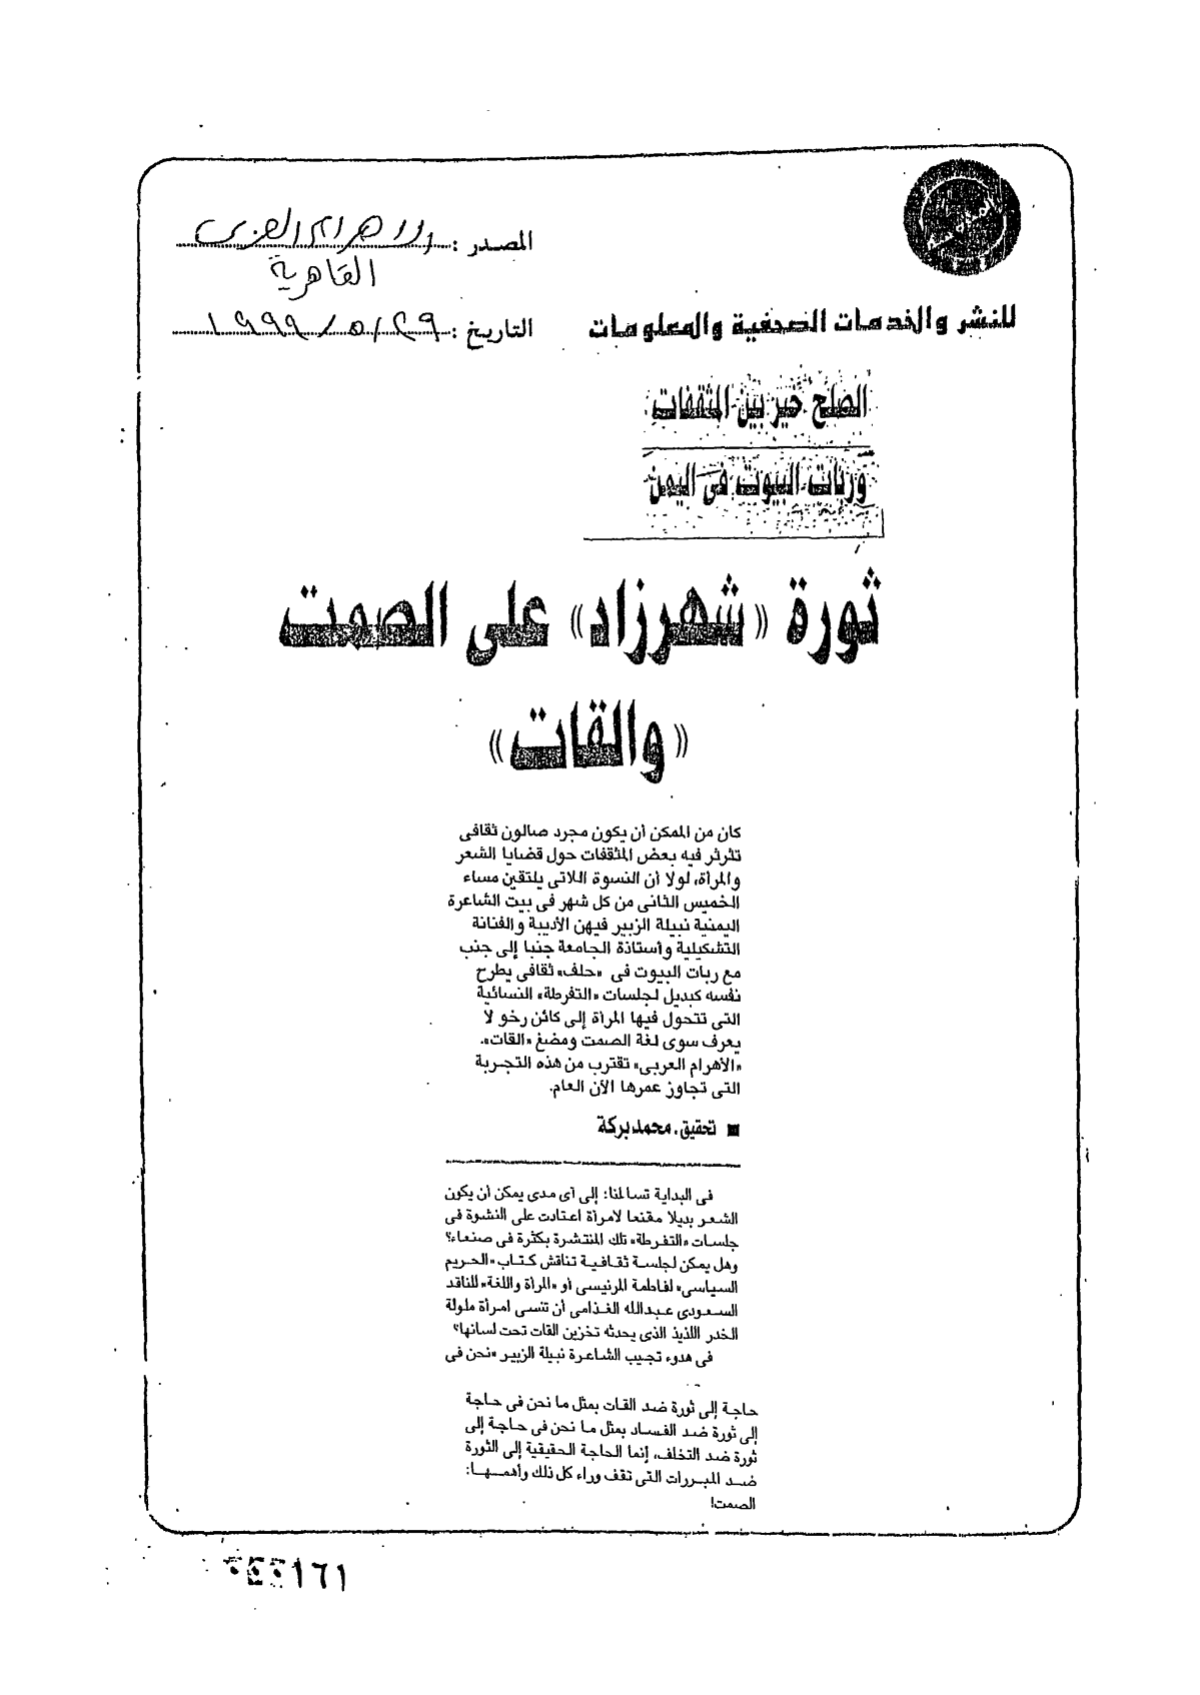 المصدر : الاهرام العربى
القاهرية
للنشر والخدمات الصحفية والمعلومات
التاريخ : ٢٩ / ٥ / ١٩٩٩
الصلح خير بين المثقفات
وربات البيوت فى اليمن
ثورة «شهرزاد» على الصمت
«والقات»
كان من الممكن أن يكون مجرد صالون ثقافى
تثرثر فيه بعض المثقفات حول قضايا الشعر
والمرأة، لولا أن النسوة اللاتى يلتقين مساء
الخميس الثانى من كل شهر فى بيت الشاعرة
اليمنية نبيلة الزبير فيهن الأديبة والفنانة
التشكيلية وأستاذة الجامعة جنبا إلى جنب
مع ربات البيوت فى «حلف» ثقافى يطرح
نفسه كبديل لجلسات «التفرطة» النسائية
التى تتحول فيها المرأة إلى كائن رخو لا
يعرف سوى لغة الصمت ومضغ «القات».
«الأهرام العربى» تقترب من هذه التجربة
التى تجاوز عمرها الآن العام.
■ تحقيق. محمد بركة
فى البداية تسالمنا: إلى أى مدى يمكن أن يكون
الشعر بديلا مقنعا لامرأة اعتادت على النشوة فى
جلسات «التفرطة» تلك المنتشرة بكثرة فى صنعاء؟
وهل يمكن لجلسة ثقافية تناقش كتاب «الحريم
السياسى» لفاطمة المرنيسى أو «المرأة واللغة» للناقد
السعودى عبدالله الغذامى أن تنسى امرأة ملولة
الخدر اللذيذ الذى يحدثه تخزين القات تحت لسانها؟
فى هدوء تجيب الشاعرة نبيلة الزبير «نحن فى
حاجة إلى ثورة ضد القات بمثل ما نحن فى حاجة
إلى ثورة ضد الفساد بمثل ما نحن فى حاجة إلى
ثورة ضد التخلف، إنما الحاجة الحقيقية إلى الثورة
ضد المبررات التى تقف وراء كل ذلك وأهمها:
الصمت!